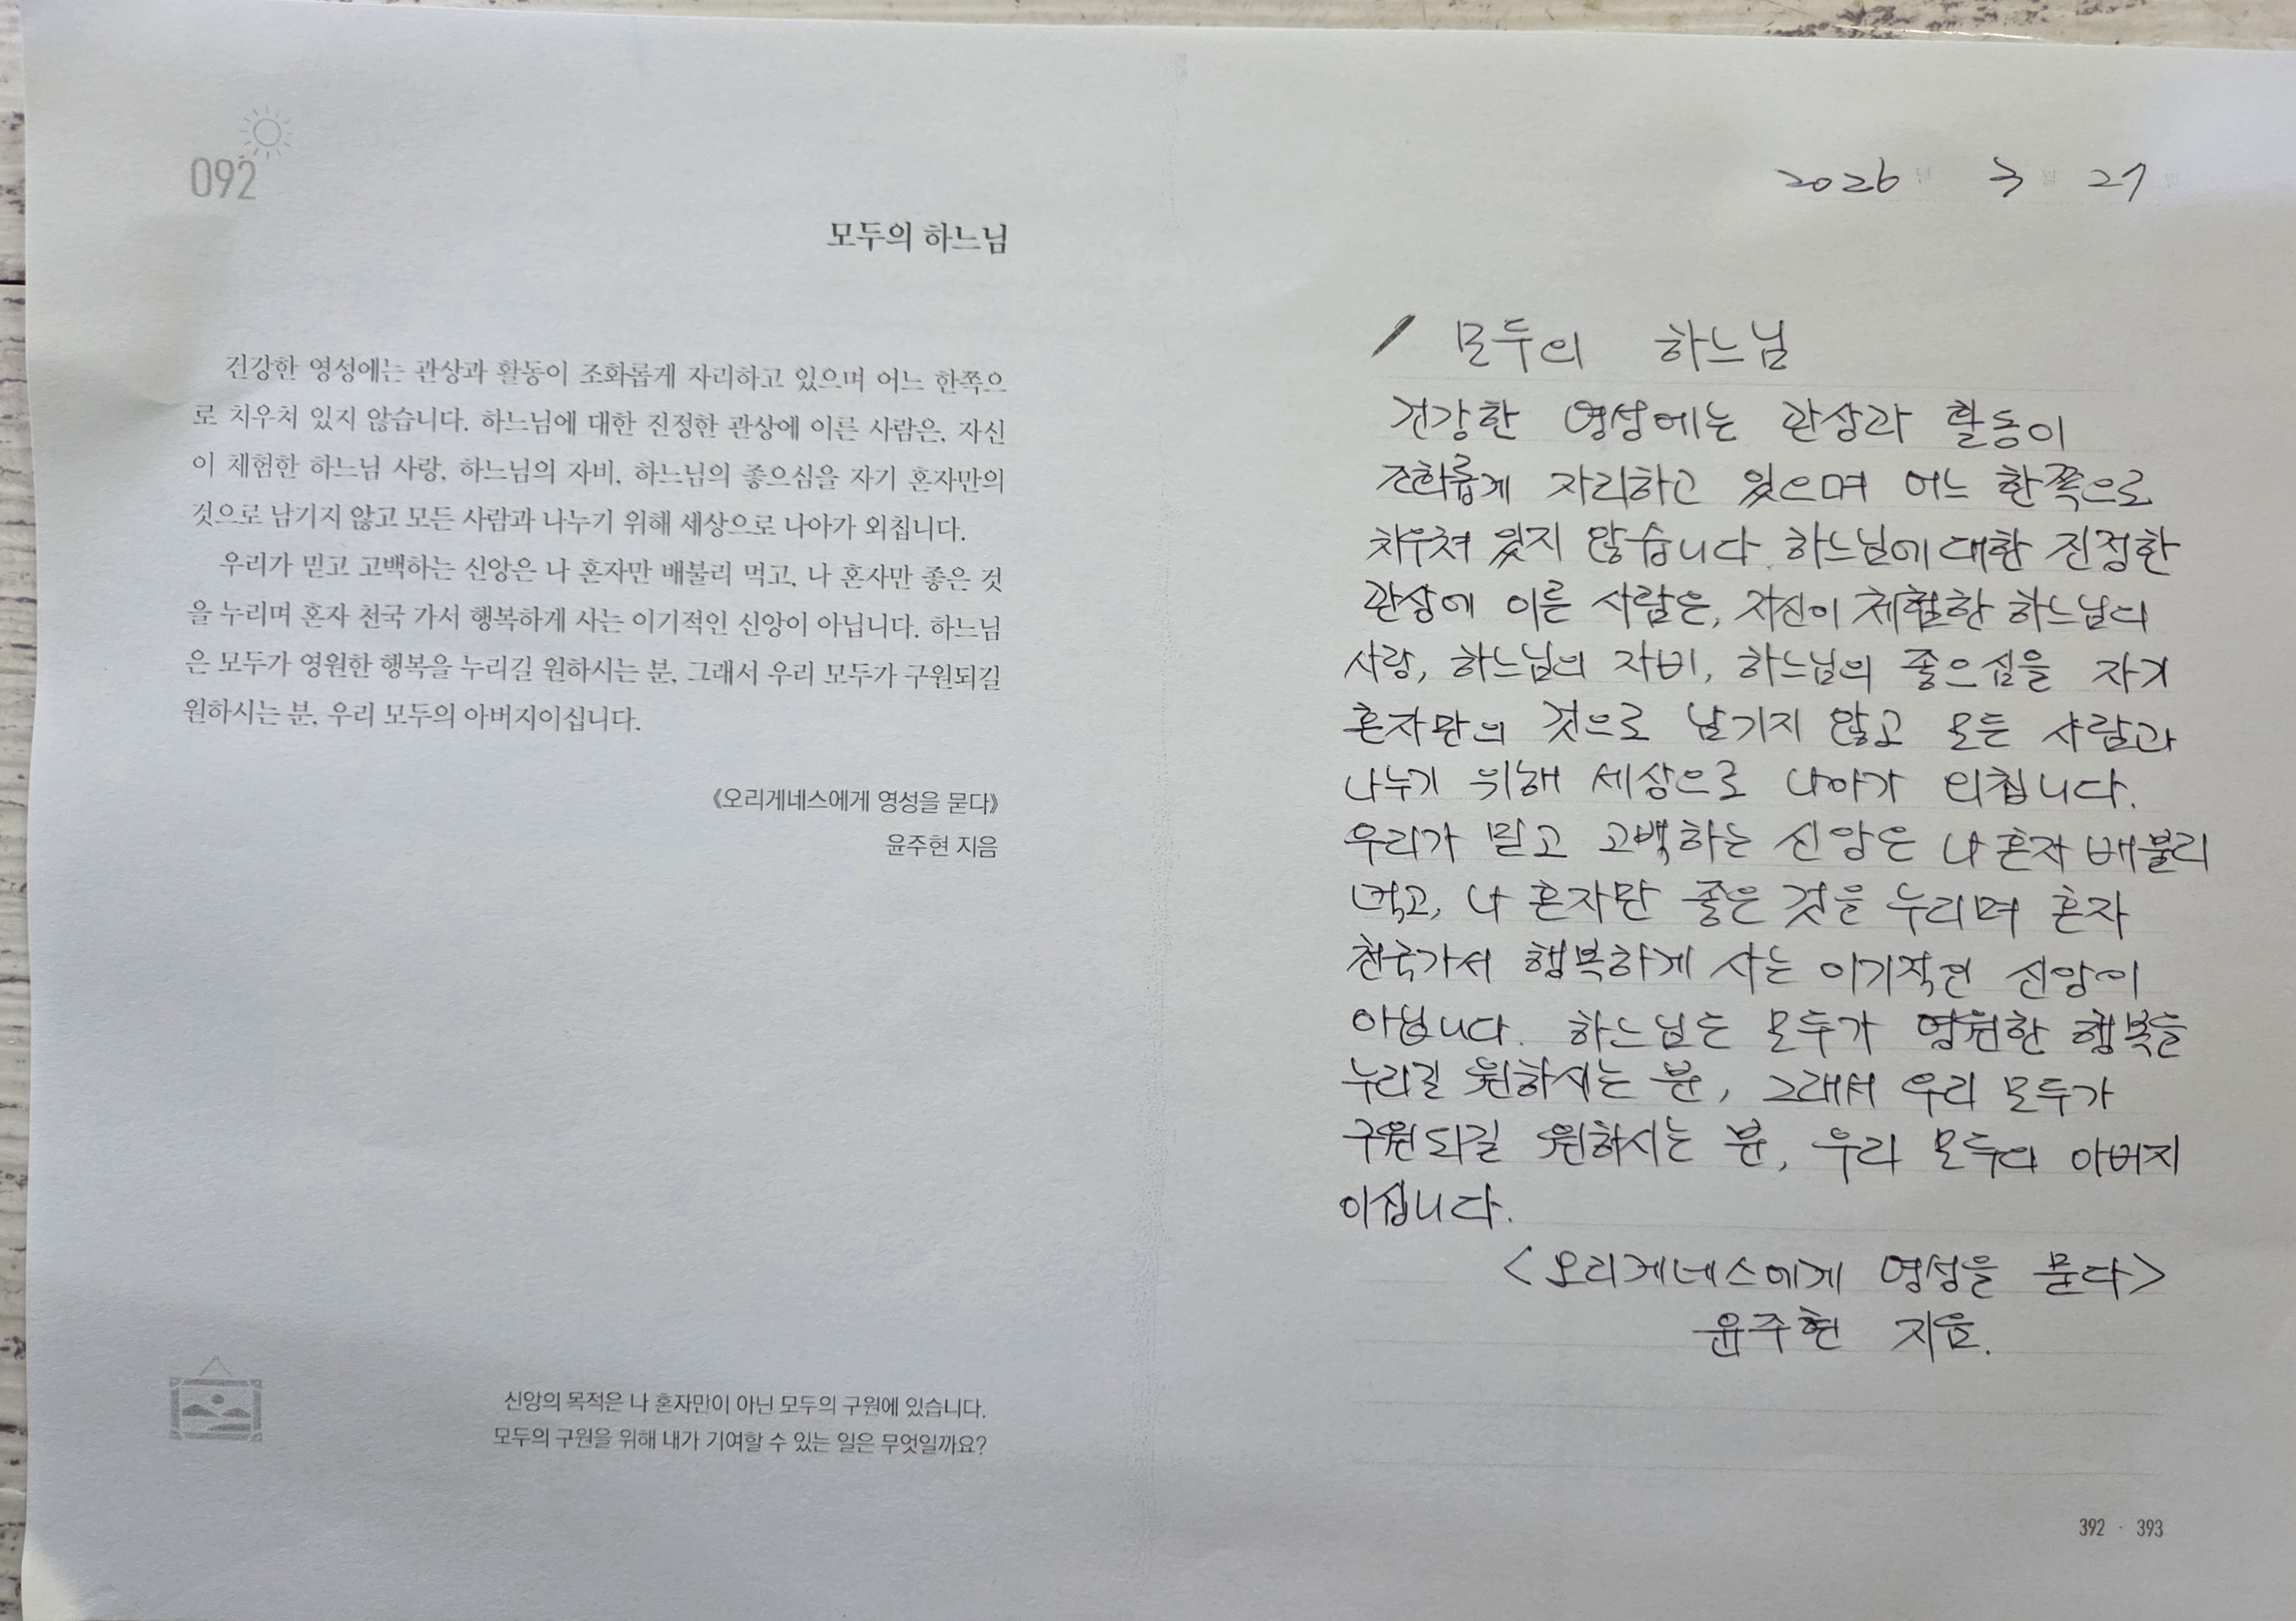 092
모두의 하느님
건강한 영성에는 관상과 활동이 조화롭게 자리하고 있으며 어느 한쪽으
로 치우쳐 있지 않습니다. 하느님에 대한 진정한 관상에 이른 사람은, 자신
이 체험한 하느님 사랑, 하느님의 자비, 하느님의 좋으심을 자기 혼자만의
것으로 남기지 않고 모든 사람과 나누기 위해 세상으로 나아가 외칩니다.
우리가 믿고 고백하는 신앙은 나 혼자만 배불리 먹고, 나 혼자만 좋은 것
을 누리며 혼자 천국 가서 행복하게 사는 이기적인 신앙이 아닙니다. 하느님
은 모두가 영원한 행복을 누리길 원하시는 분, 그래서 우리 모두가 구원되길
원하시는 분, 우리 모두의 아버지이십니다.
《오리게네스에게 영성을 묻다》
윤주현 지음
신앙의 목적은 나 혼자만이 아닌 모두의 구원에 있습니다.
모두의 구원을 위해 내가 기여할 수 있는 일은 무엇일까요?
2026 년 3 월 27 일
모두의 하느님
건강한 영성에는 관상과 활동이
조화롭게 자리하고 있으며 어느 한쪽으로
치우쳐 있지 않습니다. 하느님에 대한 진정한
관상에 이른 사람은, 자신이 체험한 하느님의
사랑, 하느님의 자비, 하느님의 좋으심을 자기
혼자만의 것으로 남기지 않고 모든 사람과
나누기 위해 세상으로 나아가 외칩니다.
우리가 믿고 고백하는 신앙은 나 혼자 배불리
먹고, 나 혼자만 좋은 것을 누리며 혼자
천국가서 행복하게 사는 이기적인 신앙이
아닙니다. 하느님은 모두가 영원한 행복을
누리길 원하시는 분, 그래서 우리 모두가
구원되길 원하시는 분, 우리 모두의 아버지
이십니다.
<오리게네스에게 영성을 묻다>
윤주현 지음.
392 · 393